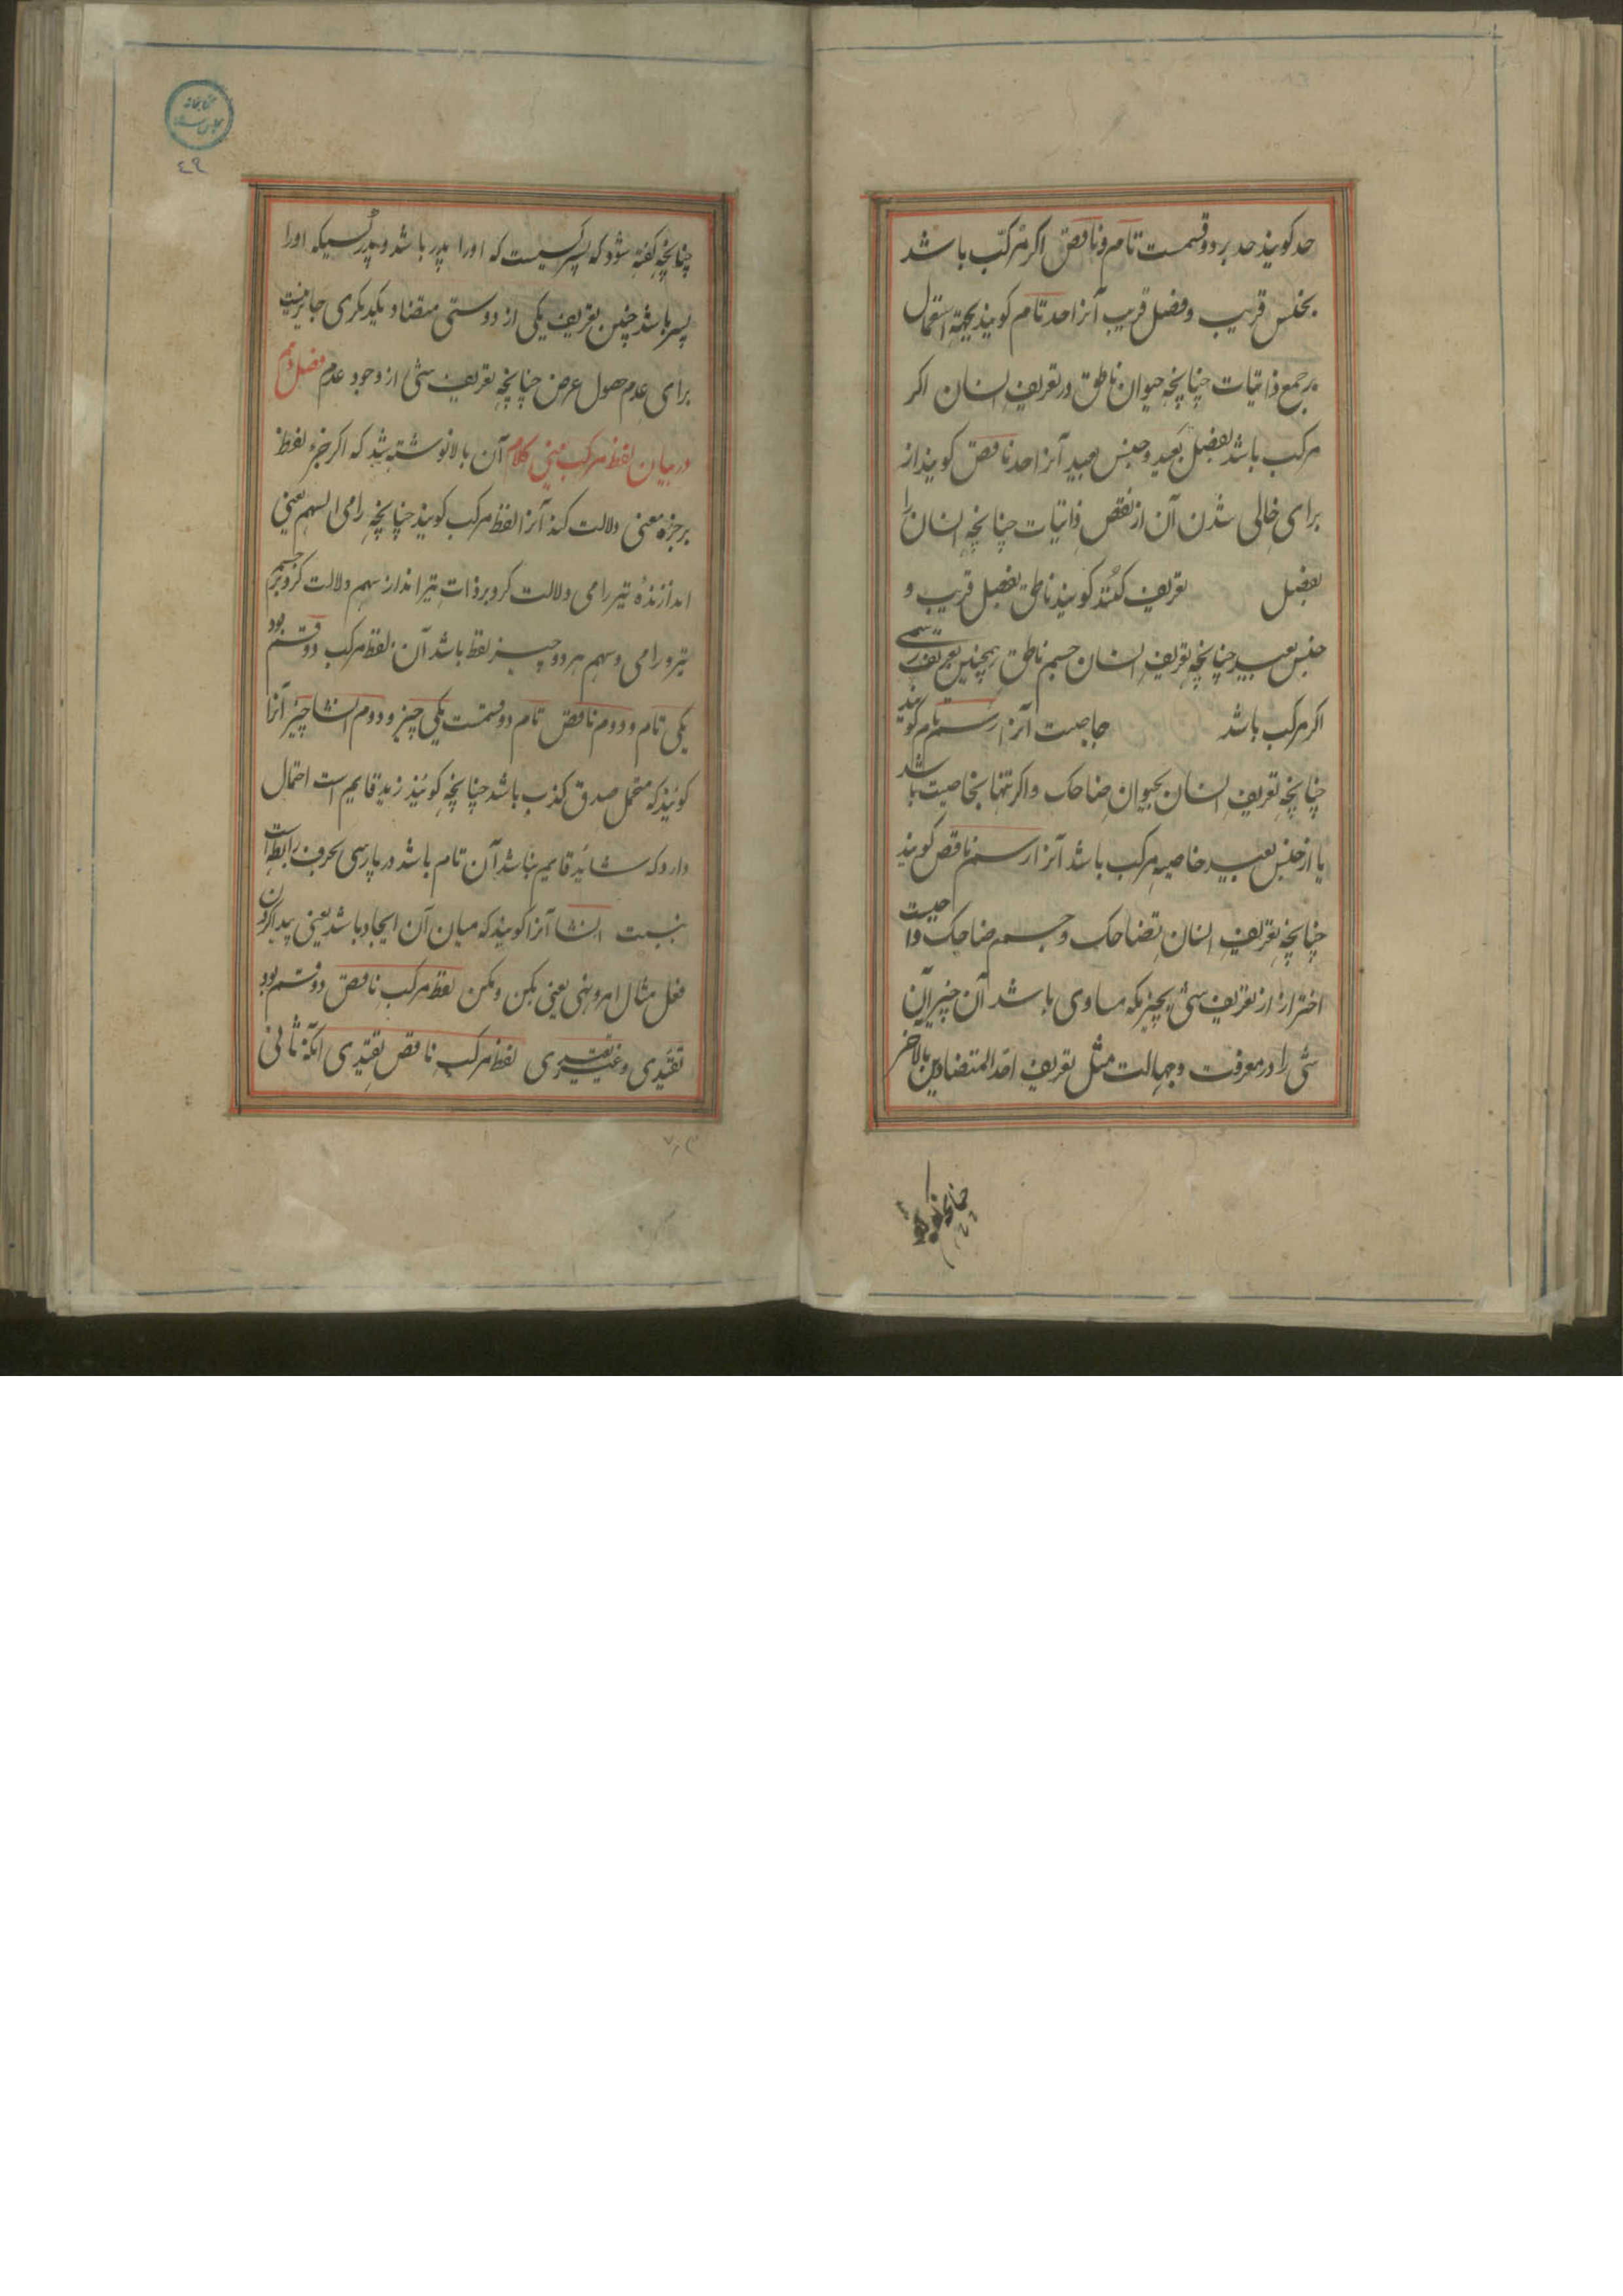 حد کویند حد بر دو قسمت تام و ناقص اکر مرکب باشد
بجنس قریب و فصل قریب آنرا حد تام کویند بجهة اشتمال
بر جمع ذاتیات چنانچه حیوان ناطق در تعریف انسان اکر
مرکب باشد بفصل بعید و جنس بعید آنرا حد ناقص کویند از
برای خالی شدن آن از نقص ذاتیات چنانچه انسان را
بفصل تعریف کنند کویند ناطق بفصل قریب و
جنس بعید چنانچه تعریف انسان جسم ناطق همچنین تعریف رسمی
اکر مرکب باشد خاصیت آنرا رسم تام کویند
چنانچه تعریف انسان بحیوان ضاحک و اکر تنها بخاصیت باشد
یا از جنس بعید خاصیه مرکب باشد آنرا رسم ناقص کویند
چنانچه تعریف انسان بضاحک و جسم ضاحک واحیت
احتراز از تعریف شئ بچیزیکه مساوی باشد آن چیز آن
شی را در معرفت و جهالت مثل تعریف احد المتضادین بالاخر
چنانچه کفته
کتابخانه مجلس
٤٩
چنانچه کفته شود که پسر کیست که اورا پدر باشد و پدر کسیکه اورا
پسر باشد چنین تعریف یکی از دوستی متضاد یکدیکری جایز نیست
برای عدم حصول عرض چنانچه تعریف شئ از وجود عدم فصل دوم
در بیان لفظ مرکب یعنی کلام آن بالا نوشته شد که اکر جزء لفظ
بر جزء معنی دلالت کند آنرا لفظ مرکب کویند چنانچه رامی السهم یعنی
اندازندهٔ تیر رامی دلالت کرد بر ذات تیرانداز سهم دلالت کرد بر جسم
تیر و رامی و سهم هر دو جزء لفظ باشد آن لفظ مرکب دو قسم بود
یکی تام و دوم ناقص تام دو قسمت یکی چیز و دوم انشا چیز آنرا
کویند که محتمل صدق کذب باشد چنانچه کویند زید قایم است احتمال
دارد که شاید قایم نباشد آن تام باشد در پارسی بحرف رابطه است
نسبت انشا آنرا کویند که میان آن ایجاد باشد یعنی پیدا کردن
فعل مثال امر و نهی یعنی بکن و مکن لفظ مرکب ناقص دو قسم بود
تقیدی و غیر تقیدی لفظ مرکب ناقص تقیدی آنکه ثانی